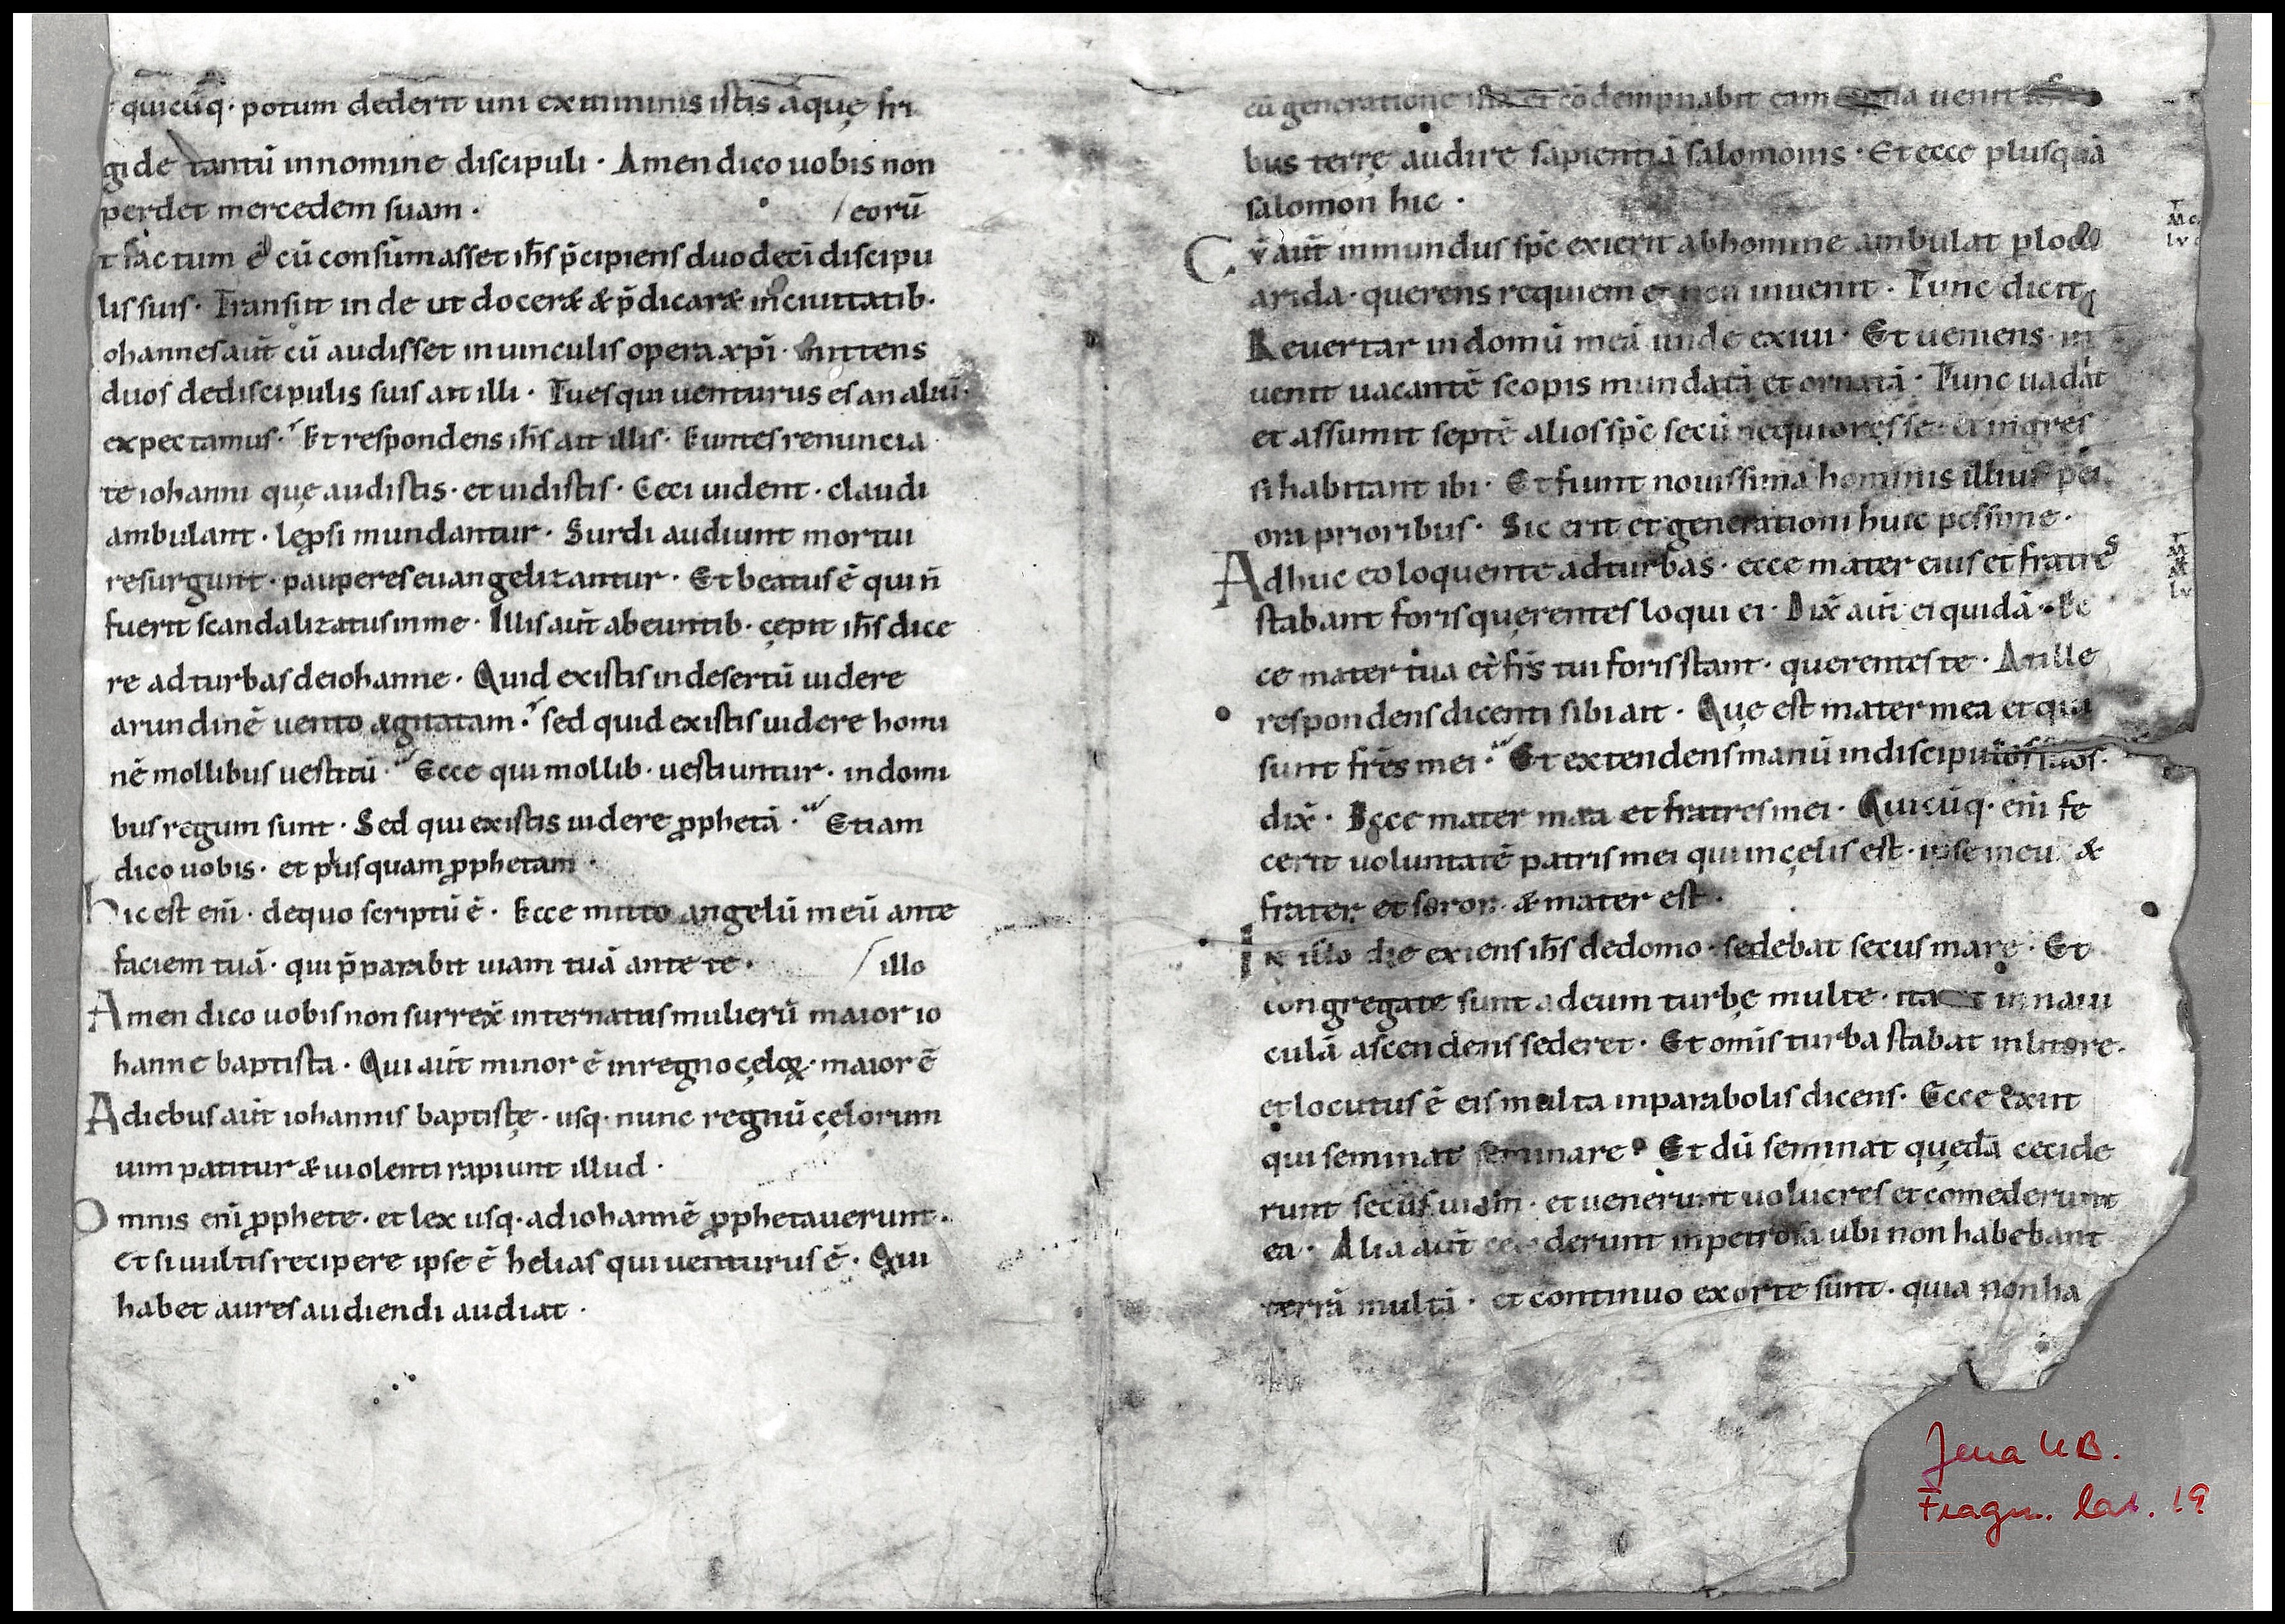 quicūq· potum dederit uni ex minimis istis aquę fri
gide tantū in nomine discipuli· Amen dico uobis non
perdet mercedem suam· /eorū
t factum ē cū consūmasset ih̄s p̄cipiens duodeci discipu
lis suis· Transiit inde ut doceræ & p̄dicaræ in ciuitatib·
ohannes aūt cū audisset in uinculis opera xp̄i· mittens
duos de discipulis suis ait illi· Tu es qui uenturus es an aliū·
expectamus· Et respondens ih̄s ait illis· Euntes renuncia
te iohanni quę audistis· et uidistis· Ceci uident· claudi
ambulant· lępsi mundantur· Surdi audiunt mortui
resurgunt· pauperes euangelizantur· Et beatus ē qui n̄
fuerit scandalizatus in me· Illis aūt abeuntib· cępit ih̄s dice
re ad turbas de iohanne· Quid existis in desertū uidere
arundinē uento agitatam· sed quid existis uidere homi
nē mollibus uestitū· Ecce qui mollib· uestiuntur· in domi
bus regum sunt· Sed qui existis uidere ꝓphetā· Etiam
dico uobis· et plus quam ꝓphetam·
hic est eni· de quo scriptū ē· Ecce mitto angelū meū ante
faciem tuā· qui p̄parabit uiam tuā ante te· /illo
Amen dico uobis non surrex̄ inter natus mulierū maior io
hanne baptista· Qui aūt minor ē in regno cęloꝝ· maior ē
A diebus aūt iohannis baptistę· usq· nunc regnū cęlorum
uim patitur & uiolenti rapiunt illud·
Omnis eni ꝓphete· et lex usq· ad iohannē ꝓphetauerunt·
et si uultis recipere ipse ē helias qui uenturus ē· Qui
habet aures audiendi audiat·
cū generatione ista et cōdempnabit eam uenit
bus terrę audire sapientiā salomonis· Et ecce plus quā
salomon hic·
Cv̄ aūt inmundus sp̄c exierit ab homine ambulat p loca
arida· querens requiem et non inuenit· Tunc dicit
Reuertar in domū meā unde exiui· Et ueniens in
uenit uacantē scopis mundatā et ornatā· Tunc uadit
et assumit septē alios sp̄c secū nequiores se· et ingres
si habitant ibi· Et fiunt nouissima hominis illius pei
ora prioribus· Sic erit et generationi huic pessime·
Adhuc eo loquente ad turbas· ecce mater eius et fratres
stabant foris querentes loqui ei· Dix̄ aūt ei quidā· Ec
ce mater tua et fr̄s tui foris stant· querentes te· At ille
respondens dicenti sibi ait· Quę est mater mea et qui
sunt fr̄es mei· Et extendens manū in discipulos suos·
dix̄· Ecce mater mea et fratres mei· Quicūq· eni fe
cerit uoluntatē patris mei qui in cęlis est· ipse meus &
frater et soror & mater est·
In illo die exiens ih̄s de domo· sedebat secus mare· Et
congregate sunt ad eum turbę multe· ita ut in naui
culā ascendens sederet· Et omīs turba stabat in litore·
et locutus ē eis multa in parabolis dicens· Ecce exiit
qui seminat seminare· Et dū seminat quędā cecide
runt secus uiam· et uenerunt uolucres et comederunt
ea· Alia aūt ceciderunt in petrosa ubi non habebant
terrā multā· et continuo exorte sunt· quia non ha
Jena UB.
Fragm. lat. 19